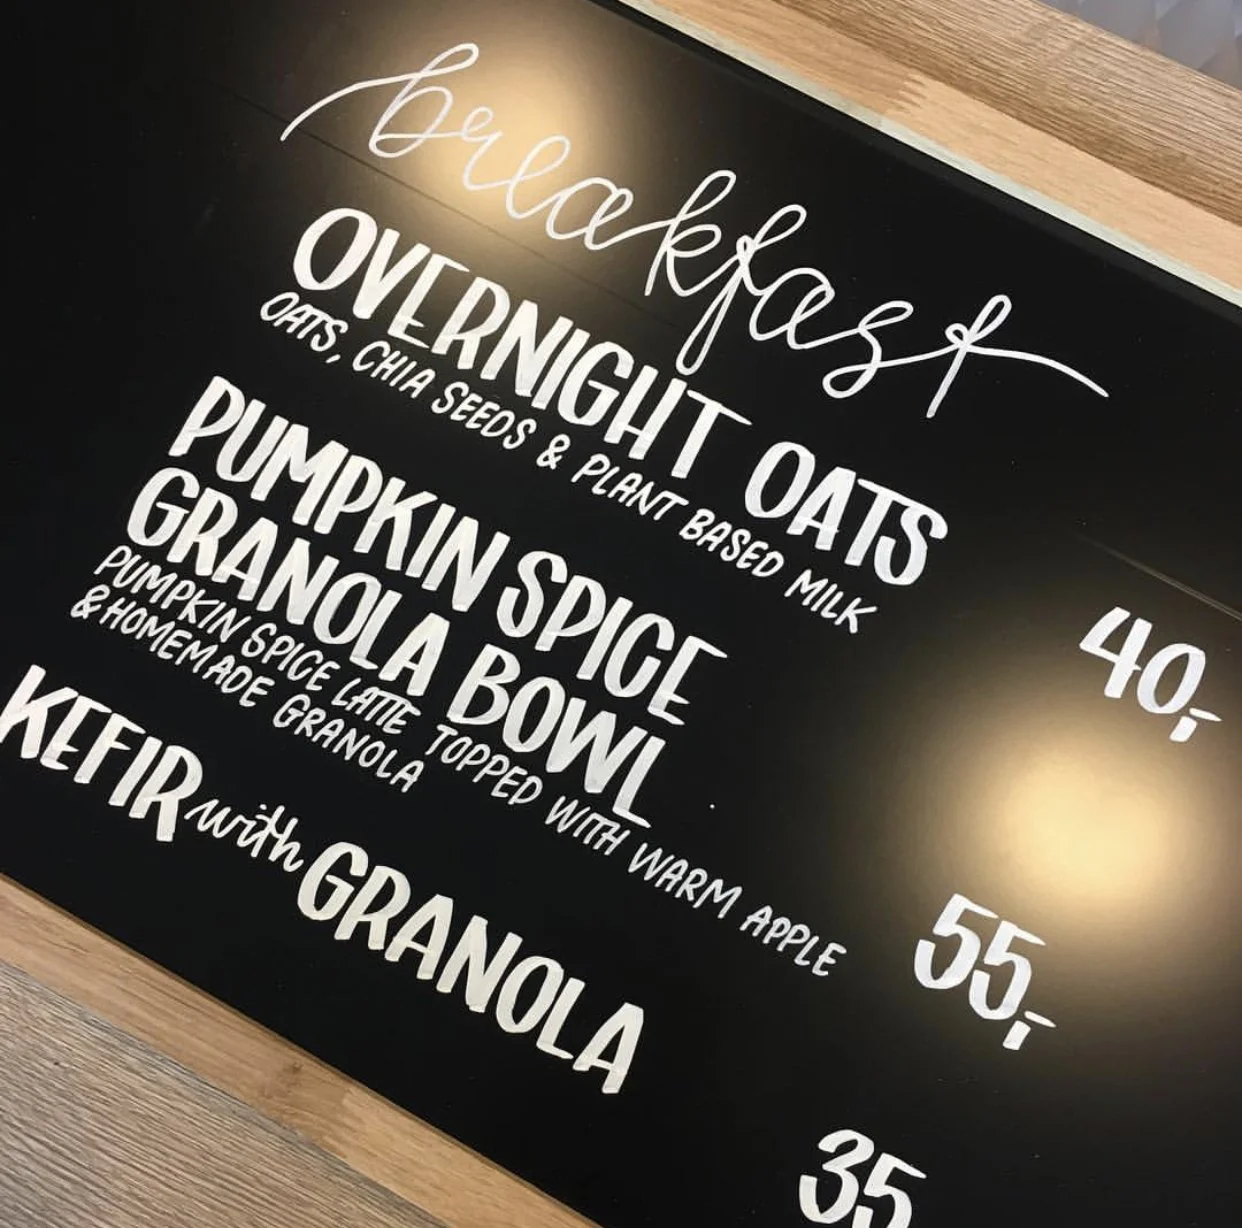 breakfast
OVERNIGHT OATS
OATS, CHIA SEEDS & PLANT BASED MILK
40,-
PUMPKIN SPICE
GRANOLA BOWL
PUMPKIN SPICE LATTE TOPPED WITH WARM APPLE
& HOMEMADE GRANOLA
55,-
KEFIR with GRANOLA
35